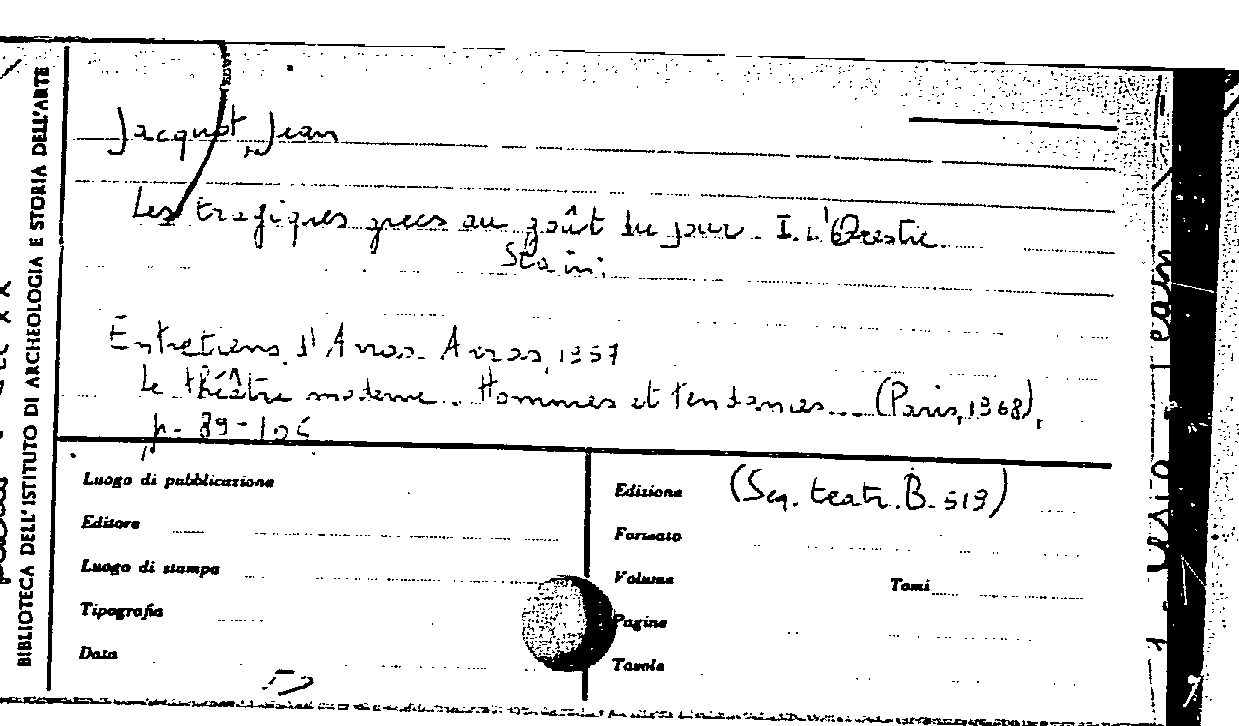 BIBLIOTECA DELL'ISTITUTO DI ARCHEOLOGIA E STORIA DELL'ARTE
Jacquot, Jean
Les tragiques grecs au goût du jour. I. L'Orestie.
Entretiens d'Arras. Arras, 1957
Le théâtre moderne. Hommes et tendances... (Paris, 1968),
p. 89-106
Luogo di pubblicazione
Editore
Luogo di stampa
Tipografia
Data
Edizione (Seg. teatr. B. 519)
Formato
Volume Tomi
Pagine
Tavole